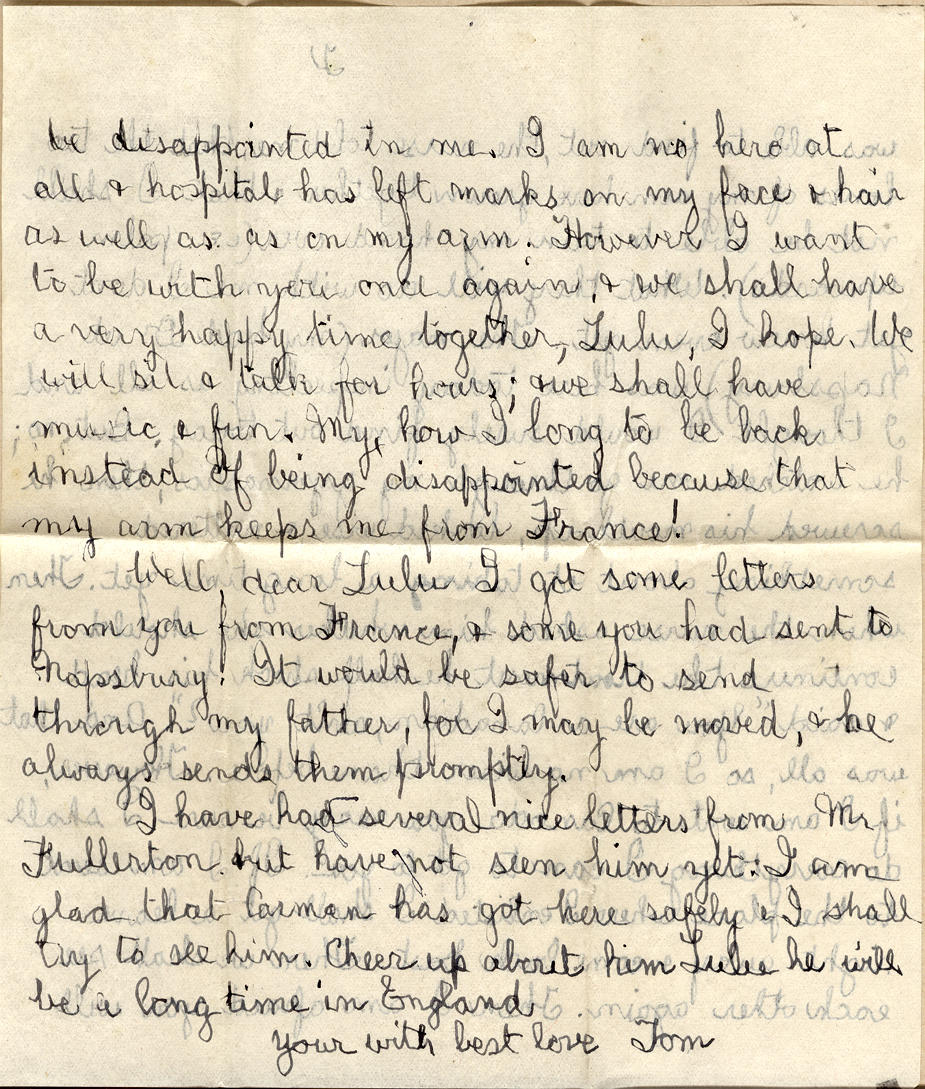 be disappointed in me. I am no hero at
all & hospital has left marks on my face & hair
as well as as on my arm. However I want
to be with you once again, & we shall have
a very happy time together, Lulu, I hope. We
will sit & talk for hours; & we shall have
music, & fun. My, how I long to be back
instead of being disappointed because that
my arm keeps me from France!
Well, dear Lulu I got some letters
from you from France, & some you had sent to
Napsbury. It would be safer to send
through my father, for I may be moved, & he
always sends them promptly.
I have had several nice letters from Mr
Fullerton but have not seen him yet. I am
glad that Carman has got here safely & I shall
try to see him. Cheer up about him Lulu he will
be a long time in England
Your with best love Tom